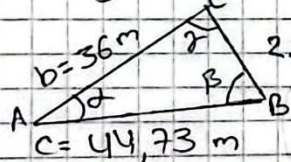 b=36m
γ
2.
α
β
A
B
c=44,73 m